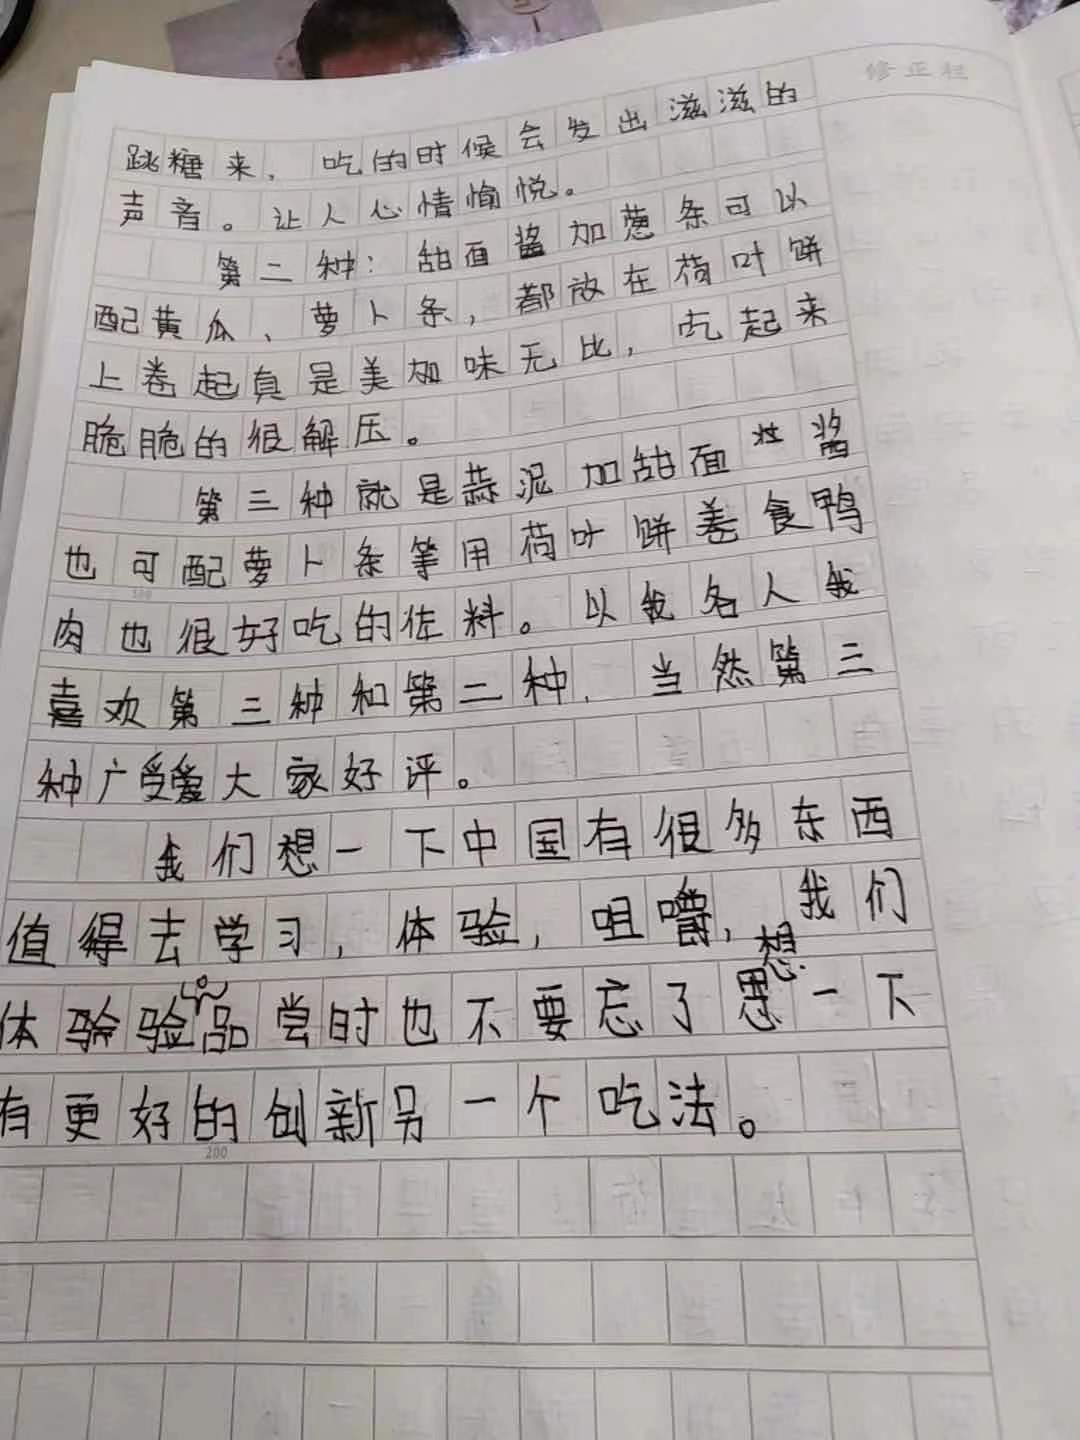 修正栏
跳糖来，吃的时候会发出滋滋的
声音。让人心情愉悦。
第二种：甜面酱加葱条可以
配黄瓜、萝卜条，都放在荷叶饼
上卷起真是美加味无比，吃起来
脆脆的很解压。
第三种就是蒜泥加甜面酱
也可配萝卜条等用荷叶饼卷食鸭
肉也很好吃的佐料。以我各人我
喜欢第三种和第二种，当然第三
种广受爱大家好评。
我们想一下中国有很多东西
值得去学习，体验，咀嚼，我们
想
体验验品尝时也不要忘了思一下
有更好的创新另一个吃法。
200